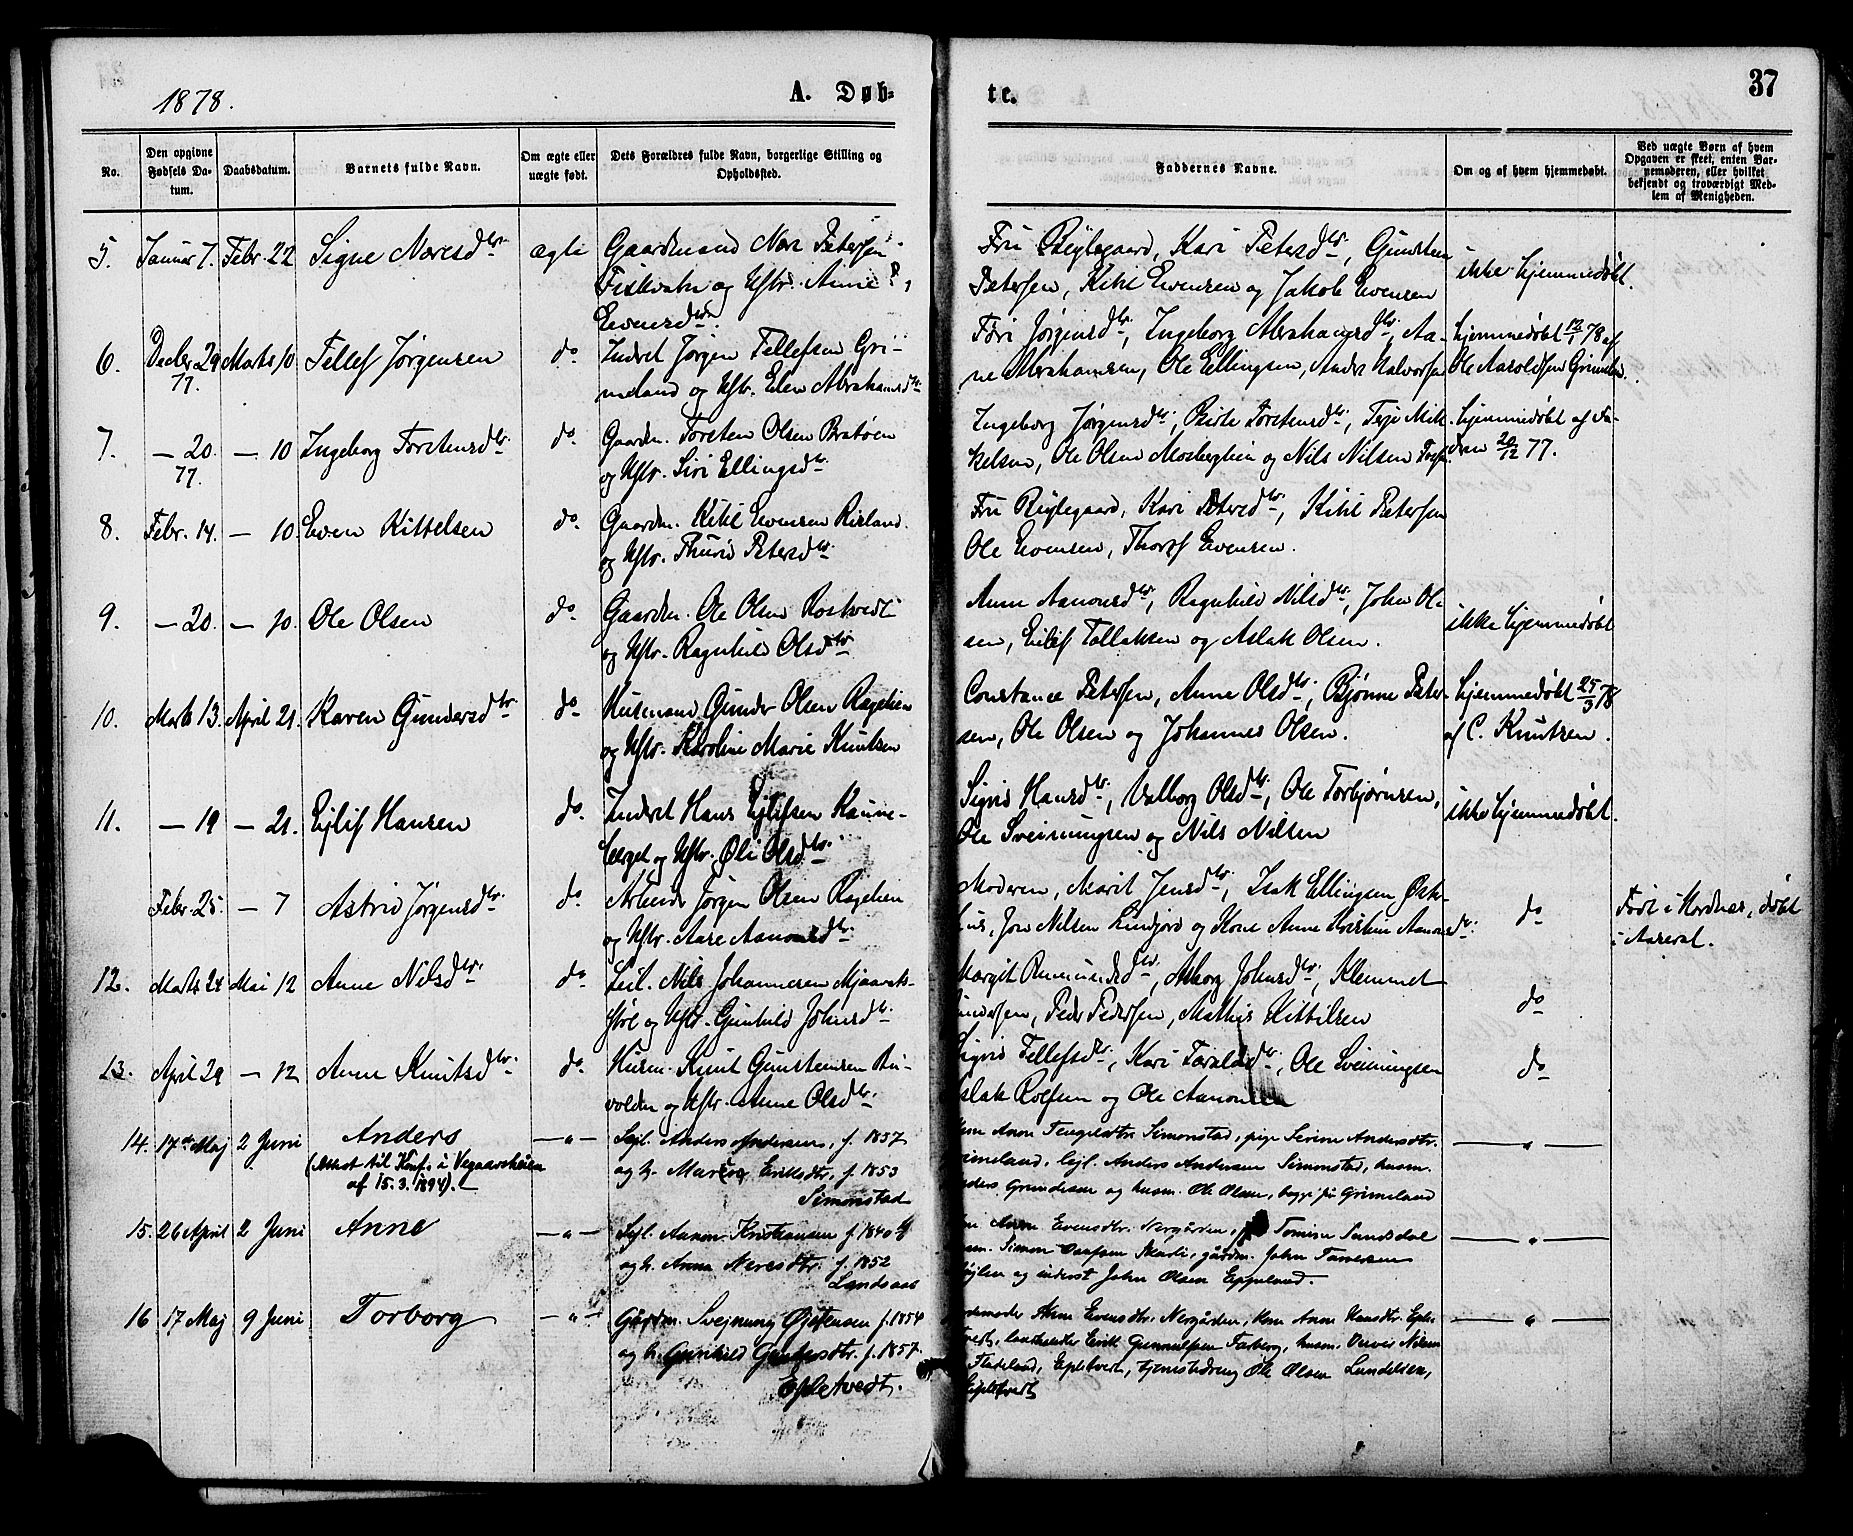 1878.
A. Døb-
te.
37
No.
Den opgivne Fødsels Da-tum.
Daabsdatum.
Barnets fulde Navn.
Om ægte eller uægte født.
Dets Forældres fulde Navn, borgerlige Stilling og Opholdssted.
Faddernes Navne.
Om og af hvem hjemmedøbt.
Ved uægte Børn af hvem Opgaven er skeet, enten Bar-nemoderen, eller hvilket bekjendt og troværdigt Med-lem af Menigheden.
5. Januar 7. Febr. 22 Signe Naresdtr. ægte
Gaardmand Nare Petersen
Fiskvatn og Hstr. Anne
Evensdtr.
Kari Petersdtr., Gunsten
Petersen, Kitil Evensen og Jakob Evensen
ikke hjemmedøbt.
6. Decbr 29 77. Marts 10 Tellef Jørgensen do
Inderst Jørgen Tellefsen Gri-
meland og Hstr. Elen Abrahamsdtr.
Jørgensdtr., Ingeborg Abrahamsdtr., Aa-
ne Abrahamsen, Ole Ellingsen, Anders Halvorsen
hjemmedøbt 12/1 78 af
Ole Aaroldsen Grimelan.
7. — 20. 77. — 10 Ingeborg Torstensdtr. do
Gaardm. Torsten Olsen Bratøen
og Hstr. Siri Ellingsdtr.
Ingeborg Jørgensdtr., Birte Torstensdtr., Terje Mik-
kelsen, Ole Olsen Mosberghein og Nils Nilsen
hjemmedøbt af Fa-
deren 20/12 77.
8. Febr. 14. — 10. Even Kittelsen do
Gaardm. Kitil Evensen Risland
og Hstr. Thurid Petersdtr.
Kari Petersdtr., Kitil Petersen
Ole Evensen, Thorsf Evensen.
9. — 20. — 10. Ole Olsen do
Gaardm. Ole Olsen Rostvedt
og Hstr. Ragnhild Olsdtr.
Anne Aanonsdtr., Ragnhild Nilsdtr., John Ol-
sen, Eilif Tollaksen og Aslak Olsen.
ikke hjemmedøbt
10. Marts 13. April 21. Karen Gundersdtr. do
Husmand Gunder Olsen Ragelien
og Hstr. Karoline Marie Knutsen
Constance Petersen, Anne Olsdtr., Bjønne Peter-
sen, Ole Olsen og Johannes Olsen.
hjemmedøbt 25/3 78
af C. Knutzen.
11. — 19 — 21. Ejlif Hansen do.
Inderst Hans Ejlifsen Ramse-
berget og Hstr. Øli Olsdtr.
Sigrid Hansdtr., Valborg Olsdtr., Ole Torbjørnsen,
Ole Sveinungsen og Nils Nilsen
ikke hjemmedøbt.
Febr. 25. — 7 Astrid Jørgensdtr. do.
Arbeider Jørgen Olsen Ragelien
og Hstr. Aase Aanonsdtr.
Moderen, Marit Jensdtr., Isak Ellingsen Øsk-
Jon Nilsen Lindjord og Kone Anne Kristine Aanonsdtr.
do
Født i Hordnes, døbt
i Aaseral.
12. Marts 24 Mai 12 Anne Nilsdtr. do.
Leil. Nils Johannesen Mjaavats-
støl og Hstr. Gunhild Johnsdtr.
Margit Rumundsdtr., Asborg Johnsdtr., Klemmet
Peder Pedersen, Mathis Kittilsen
do
13. April 29 — 12 Anne Knutsdtr. do.
Husm. Knut Gunstensen Ru-
volden og Hstr. Anne Olsdtr.
Sigrid Tellefsdtr., Kari Taraldsdtr., Ole Sveinungsen
Aslak Rolfsen og Ole Aanonsen
do
14. 17de Maj 2 Juni Anders — " —
(Attest til Konf. i Vegaarsheien
af 15.3.1894). —
Sejl. Anders Andersen, f. 1857
og h. Maren Eriksdtr., f. 1853
Simonstad
Anne Tengelsdtr Simonstad, pige Serine Andersdtr.
Grimeland, lejl. Anders Andersen Simonstad, husm.
Anders Gundersen og husm. Ole Olsen, begge på Grimeland
— " —
15. 26 April 2 Juni Anne — " —
Sejl. Aanon Kristiansen f. 1840
og h. Anne Naresdtr. f. 1852
Landsaas
Anne Evensdtr. Nergården, Tomine Sundsdal
Simon Skarli, gårdm. John Tarersen
og inderst John Olsen Eppeland.
— " —
16 17 Maj 9 Juni Torborg — " —
Gårdm. Svejnung Øjstensen f. 1854
og h. Gunhild Gundersdtr. f. 1857.
Epletvedt.
Anne Evensdtr. Nergården, Kone Anne Hansdtr. Eple-
tvedt, Erik Gunnulfsen Farberg, husm. Nilsen
Fladeland, Epletvedt, tjenestedreng Ole Olsen Lundelien,
Epletvedt
— " —